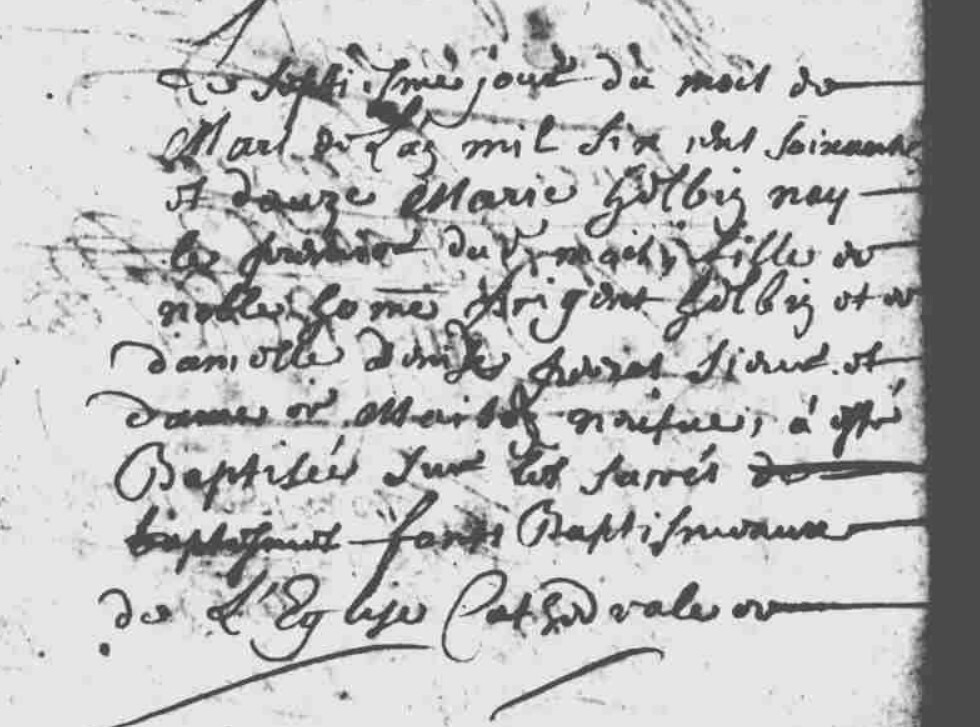 Le septiesme jour du mois de
Mars de L'an mil six cent soixante
et douze Marie helbin nay
le premier du mois fille de
noble home Prigent helbin et de
damoelle denise perret sieur et
dame de maison neufve, à esté
Baptisée sur les sacrés de
baptismes fonts Baptismeaux
de L'Eglise Cathedrale de